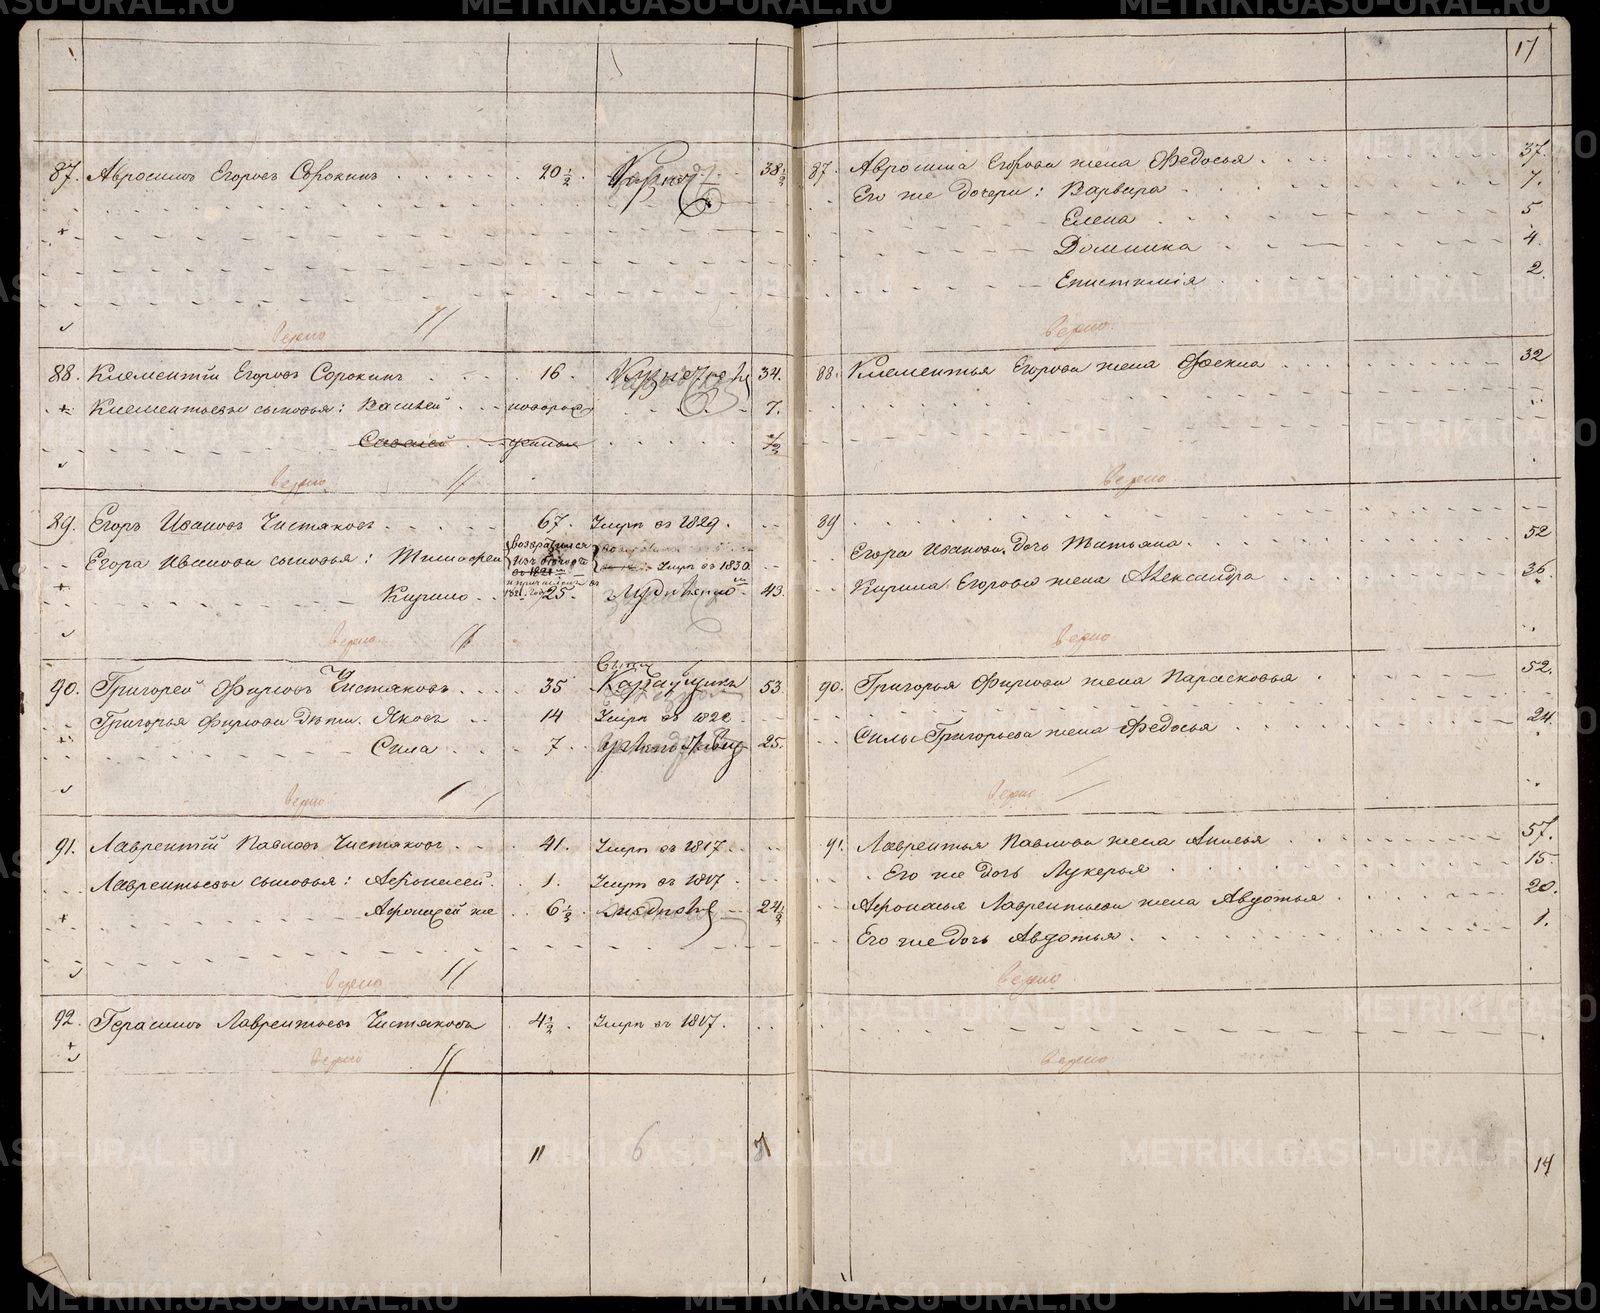 17
87. Авросимъ Егоровъ Сорокинъ 20 1/2 38 1/2
верно
88. Клементїй Егоровъ Сорокинъ 16. 34.
Клементьевы сыновья: Василей 7.
1/2
верно
89. Егоръ Ивановъ Чистяковъ 67. Умре въ 1829.
Егора Иванова сыновья: Тимофей возвратился изъ бѣговъ въ 1821 Умре въ 1830
Кирило 25. 43.
верно
90. Григорей Фирсовъ Чистяковъ 35 53.
Григорья Фирсова дѣти. Яковъ 14 Умре въ
Сила 7. 25.
верно
91. Лаврентїй Павловъ Чистяковъ 41. Умре въ 1817.
Лаврентьевы сыновья: Афонасей. 1. Умре въ 1807.
Афонасей же 6 1/2 24 1/2
верно
92. Герасимъ Лаврентьевъ Чистяковъ 4 1/2. Умре въ 1807.
верно
11 6
87. Авросима Егорова жена Федосья 37.
Его же дочери: Варвара 7.
Елена 5
Домника 4.
Епистимїя 2.
верно.
88. Клементья Егорова жена Фекла 32
верно
89
Егора Иванова дочь Татьяна. 52
Кирила Егорова жена Александра 36.
верно
90. Григорья Фирсова жена Парасковья 52.
Силы Григорьева жена Федосья 24.
верно
91. Лаврентья Павлова жена Анисья 57.
Его же дочь Лукерья 15.
Афонасья Лаврентьева жена Авдотья 20.
Его же дочь Авдотья. 1.
верно
верно
14
METRIKI.GASO-URAL.RU